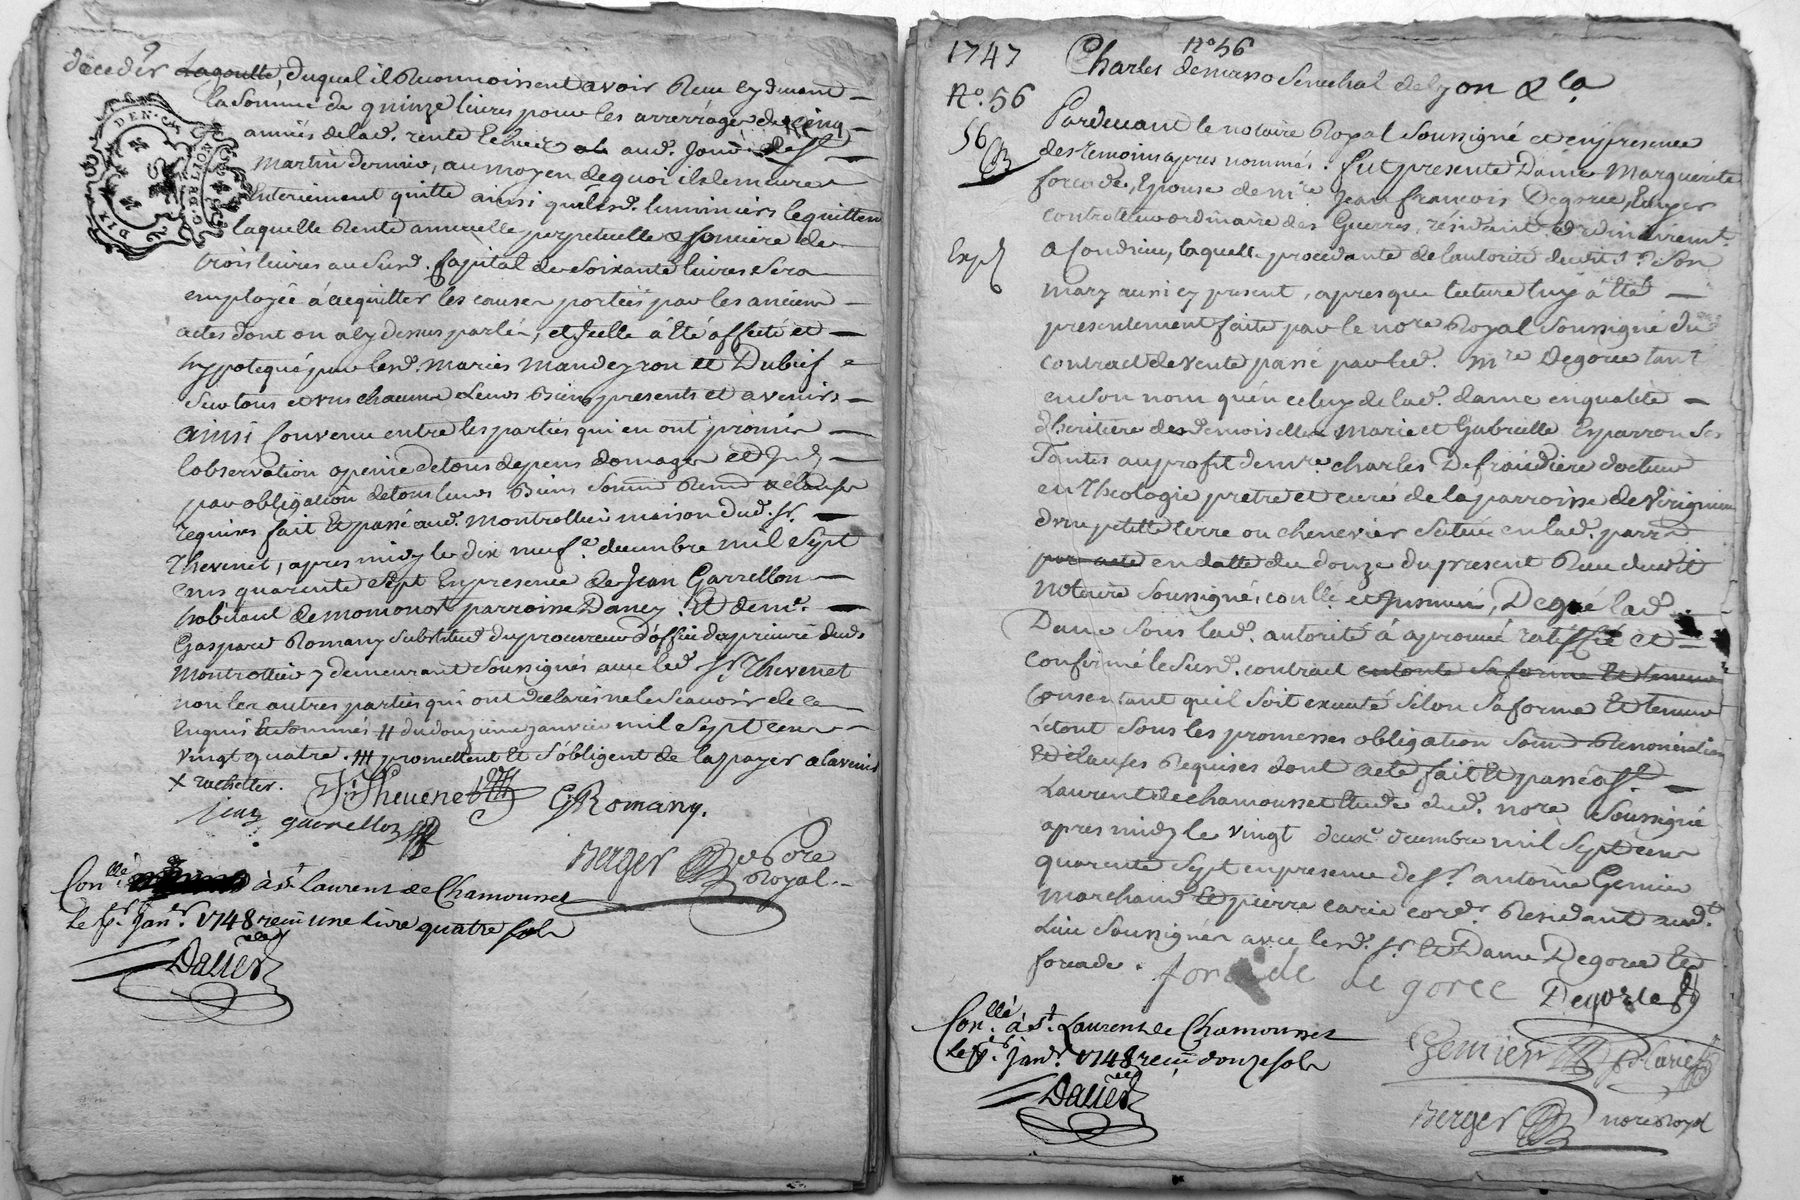 decedes Lagoutte, duquel il Reconnoissent avoir Receu cy devant
la somme de quinze livres pour les arrerages de cinq
années de lad. rente Echuës aud. jour de st
martin dernier, au moyen de quoi ils demeurent
Entierement quitte ainsi luminiers le quittent
laquelle Rente annuelle perpetuelle & fonciere de
trois livres au susd. Capital de soixante livres sera
employée à acquitter les causes portées par les anciens
actes dont on a cy dessus parlé, et Icelle a été affecté et
hypotequé par lesd. mariés mandeyron et Dubief
sur tous et uns chacuns Leurs Biens presents et avenirs
ainsi Convenu entre les parties qui en ont promis
lobservation a peine de tous depens domages et
par obligation de tous leurs Biens & clauses
requises fait Et passé aud. montrottier maison dud. sr.
Thevenet, apres midy le dix neufe. decembre mil sept
cens quarante sept En presence de Jean Garrellon
habitant de parroisse Dancy. Et de me.
Gaspard Romany substitud du procureur d'office du prieuré dud.
montrottier y demeurant soussignés avec led. sr. Thevenet
non les autres parties qui ont declarés ne le scavoir de ce
Enquis Et sommés # du douzieme janvier mil sept cens
vingt quatre. ## promettent Et s'obligent de la payer a lavenir
x racheter.
Thevenet
G Romany.
jean garrellon
Berger
nore
Royal
Conllé. à st laurent de Chamousset
le janr. 1748 receu une livre quatre sols
Dalier
1747
No. 56
Charles de masso Senechal de lyon & la
No. 56
56
Pardevant le notaire Royal soussigné et en presence
des temoins apres nommés. fut presente Dame Marguerite
forcade, Epouse de mre Jean francois Degorce, Ecuyer
controlleur ordinaire des Guerres, résidant ordinairemt.
Expé
a Condrieu, laquelle procedante de lautorité dudit sr. son
mary aussi cy present, apres que lecture luy a été
presentement faite par le nore Royal soussigné du
contract de vente passé par led. mre Degorce tant
en son nom qu'en celuy de lad. dame en qualité
d'heritiere des demoiselles marie et Gabrielle Esparron ses
Tantes au profit de mre. charles Defraidiere docteur
en theologie pretre et curé de la parroisse de Virignieu
d'une petitte terre ou chenevier scituée en lad. parr.
par acte en datte du douze du present Receu dudit
notaire soussigné, conllé et Insinué, De gré lad.
Dame sous lad. autorité a aprouvé ratiffié et
confirmé le susd. contract en toute sa forme Et teneur
consentant qu'il soit executé selon sa forme Et teneur
étant sous les promesses obligation Renonciation
Et clauses Requises dont acte, fait Et passé a st.
Laurent de chamousset Etude dud. nore soussigné
apres midy le vingt deuxe. decembre mil sept cens
quarante sept en presence de sr. antoine Gemier
marchand Et pierre carie cordr. Residant aud.
Lieu soussignés avec lesd. sr. Et Dame Degorce Et
forcade.
forcade de gorce Degorce
Gemier P. Carie
Conllé. à st. Laurent de Chamousset
le janr. 1748 receu douze sols
Dalier
Berger nore Royal